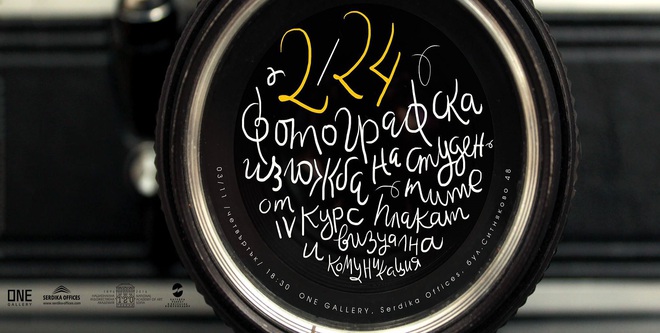 2/24
фотографска
изложба на студен-
тите
от IV курс плакат
и визуална
комуникация
03/11 / четвъртък / 18:30 ONE GALLERY, Serdika Offices, бул. Ситняково 48
ONE
GALLERY
SERDIKA OFFICES
www.serdikaoffices.com